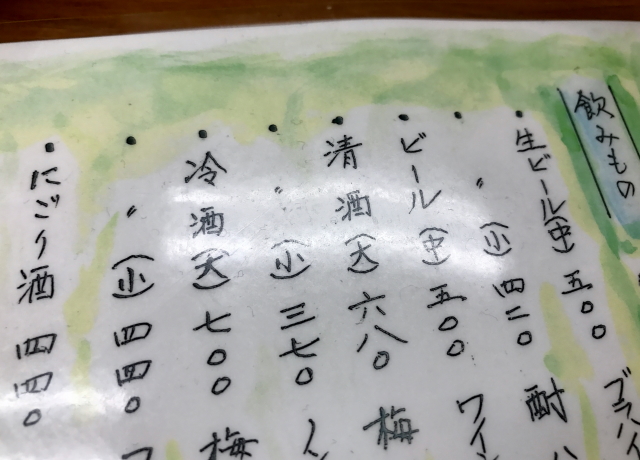 飲みもの
・生ビール(中) 五〇〇
・〃 (小) 四二〇
・ビール(中) 五〇〇
・清酒(大) 六八〇
・〃 (小) 三七〇
・冷酒(大) 七〇〇
・〃 (小) 四四〇
・にごり酒 四四〇
酎
ワイン
梅
梅